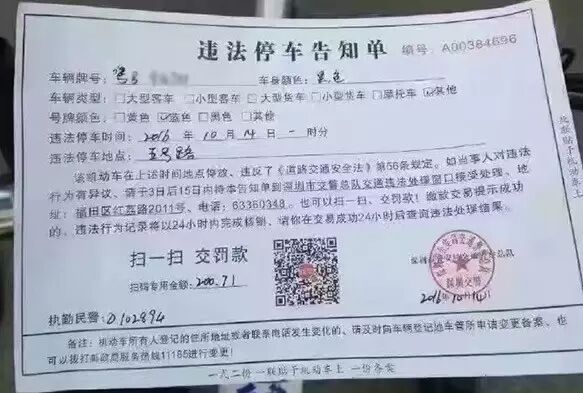 违法停车告知单 编号: A00384696
车辆牌号: 粤B 车身颜色: 黑色
车辆类型: □大型客车 □小型客车 □大型货车 □小型货车 □摩托车 ☑其他
号牌颜色: □黄色 ☑蓝色 □黑色 □其他
违法停车时间: 2016 年 10 月 14 日 一 时 分
违法停车地点: 五号路
该机动车在上述时间地点停放、违反了《道路交通安全法》第56条规定。如当事人对违法
行为有异议、请于3日后15日内持本告知单到深圳市交警总队交通违法处理窗口接受处理、地
址: 福田区红荔路2011号、电话: 63360348. 也可以扫一扫、交罚款! 缴款交易提示成功
的、违法行为记录将以24小时内完成核销、请你在交易成功24小时后查询违法处理结果。
扫一扫 交罚款
扫码专用金额: 200.71
深圳交警
2016年10月14日
执勤民警: 0102894
备注: 机动车所有人登记的住所地址或者联系电话发生变化的、请及时向车辆登记地车管所申请变更备案、也
可以拨打邮政局服务热线11185进行变更!
一式二份 一联贴于机动车上 一份备案
此联贴于机动车上